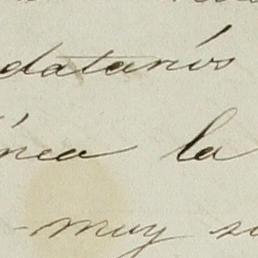 datarios
inea la
muy